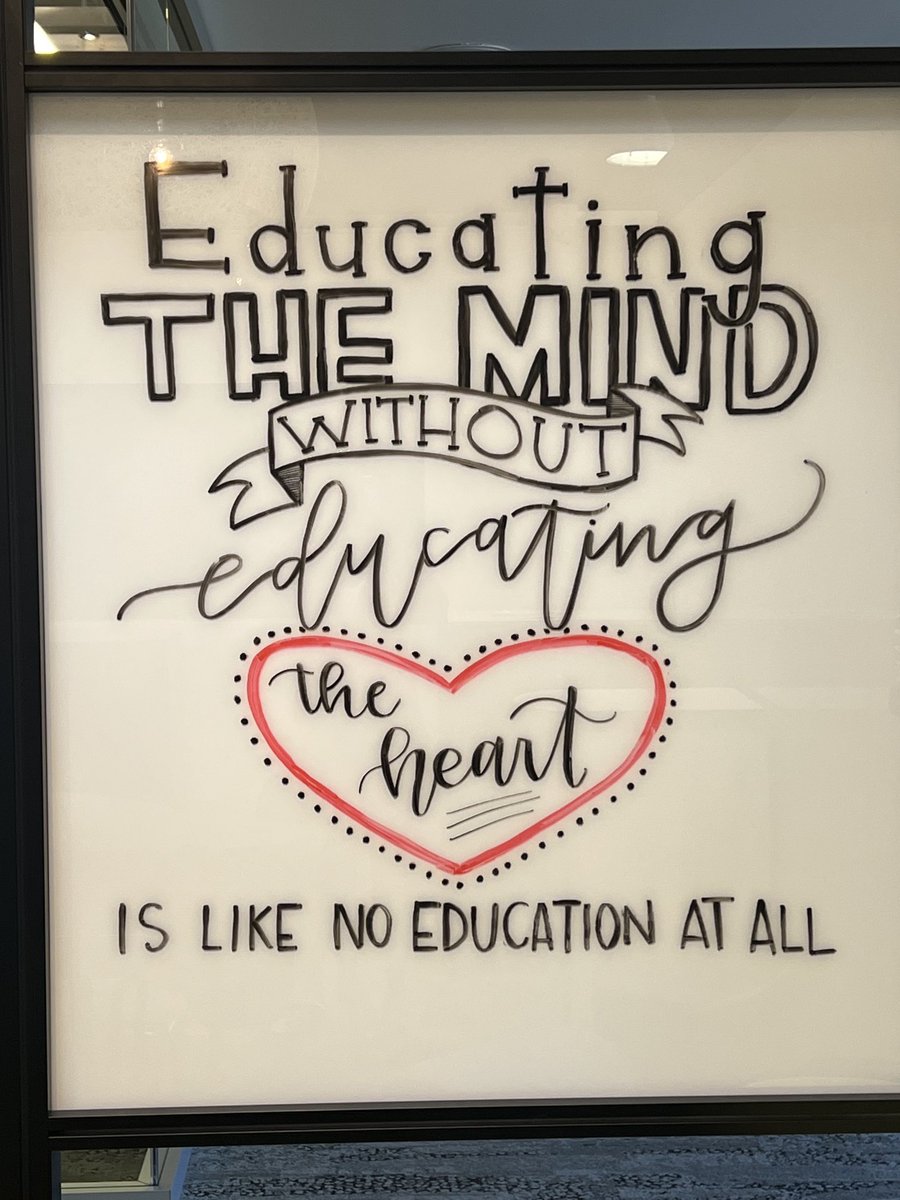 Educating
THE MIND
WITHOUT
educating
the
heart
IS LIKE NO EDUCATION AT ALL